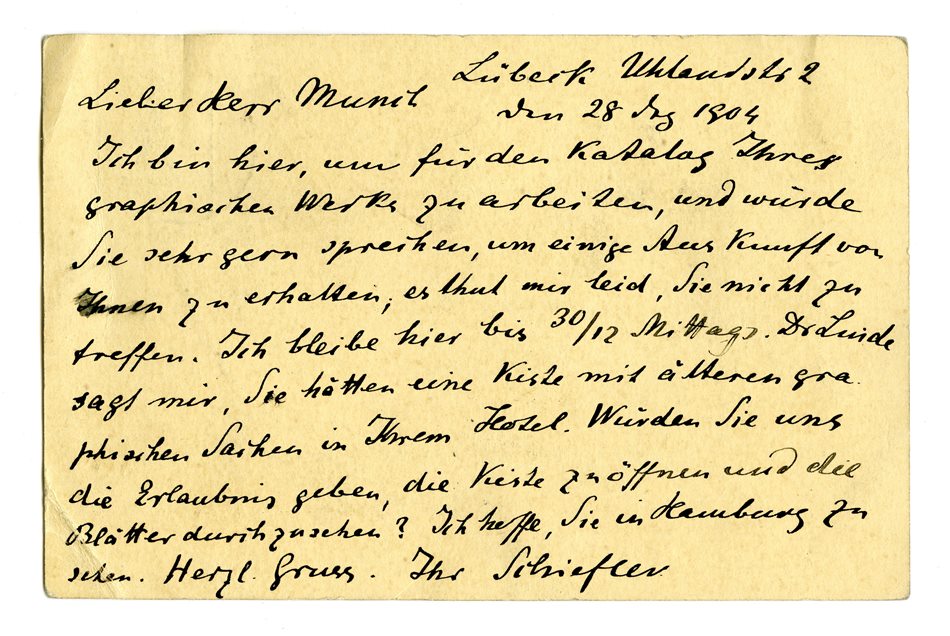 Lübeck Uhlandstr 2
Lieber Herr Munch
den 28 Dez 1904
Ich bin hier, um für den Katalog Ihres
graphischen Werks zu arbeiten, und würde
Sie sehr gern sprechen, um einige Auskunft von
Ihnen zu erhalten; es thut mir leid, Sie nicht zu
treffen. Ich bleibe hier bis 30/12 Mittags. Dr Linde
sagt mir, Sie hätten eine Kiste mit älteren gra
phischen Sachen in Ihrem Hotel. Würden Sie uns
die Erlaubnis geben, die Kiste zu öffnen und die
Blätter durchzusehen? Ich hoffe, Sie in Hamburg zu
sehen. Herzl. Gruss. Ihr Schiefler